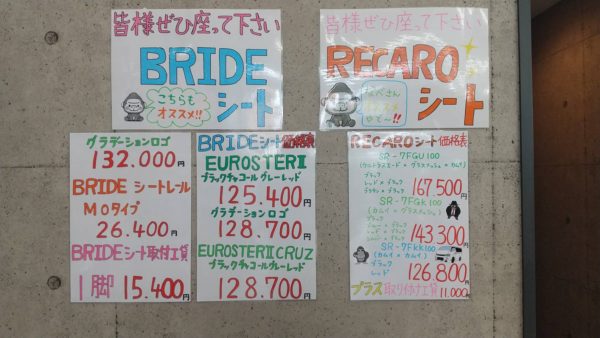 皆様ぜひ座って下さい
BRIDE
シート
こちらも
オススメ!!
皆様ぜひ座って下さい
RECARO
シート
グラデーションロゴ
132.000円
BRIDE シートレール
MOタイプ
26.400円
BRIDEシート取付工賃
1脚 15.400円
BRIDEシート価格表
EUROSTERII
ブラックチャコールグレーレッド
125.400円
グラデーションロゴ
128.700円
EUROSTERIICRUZ
ブラックチャコールグレーレッド
128.700円
RECAROシート価格表
SR-7FGU100
ブラック
レッド×ブラック
167.500円
SR-7FGK100
(カムイ×グラスメッシュ)
ブラック
143.300円
SR-7FKK100
(カムイ×カムイ)
ブラック
レッド
126.800円
プラス取り付け工賃 11.000円